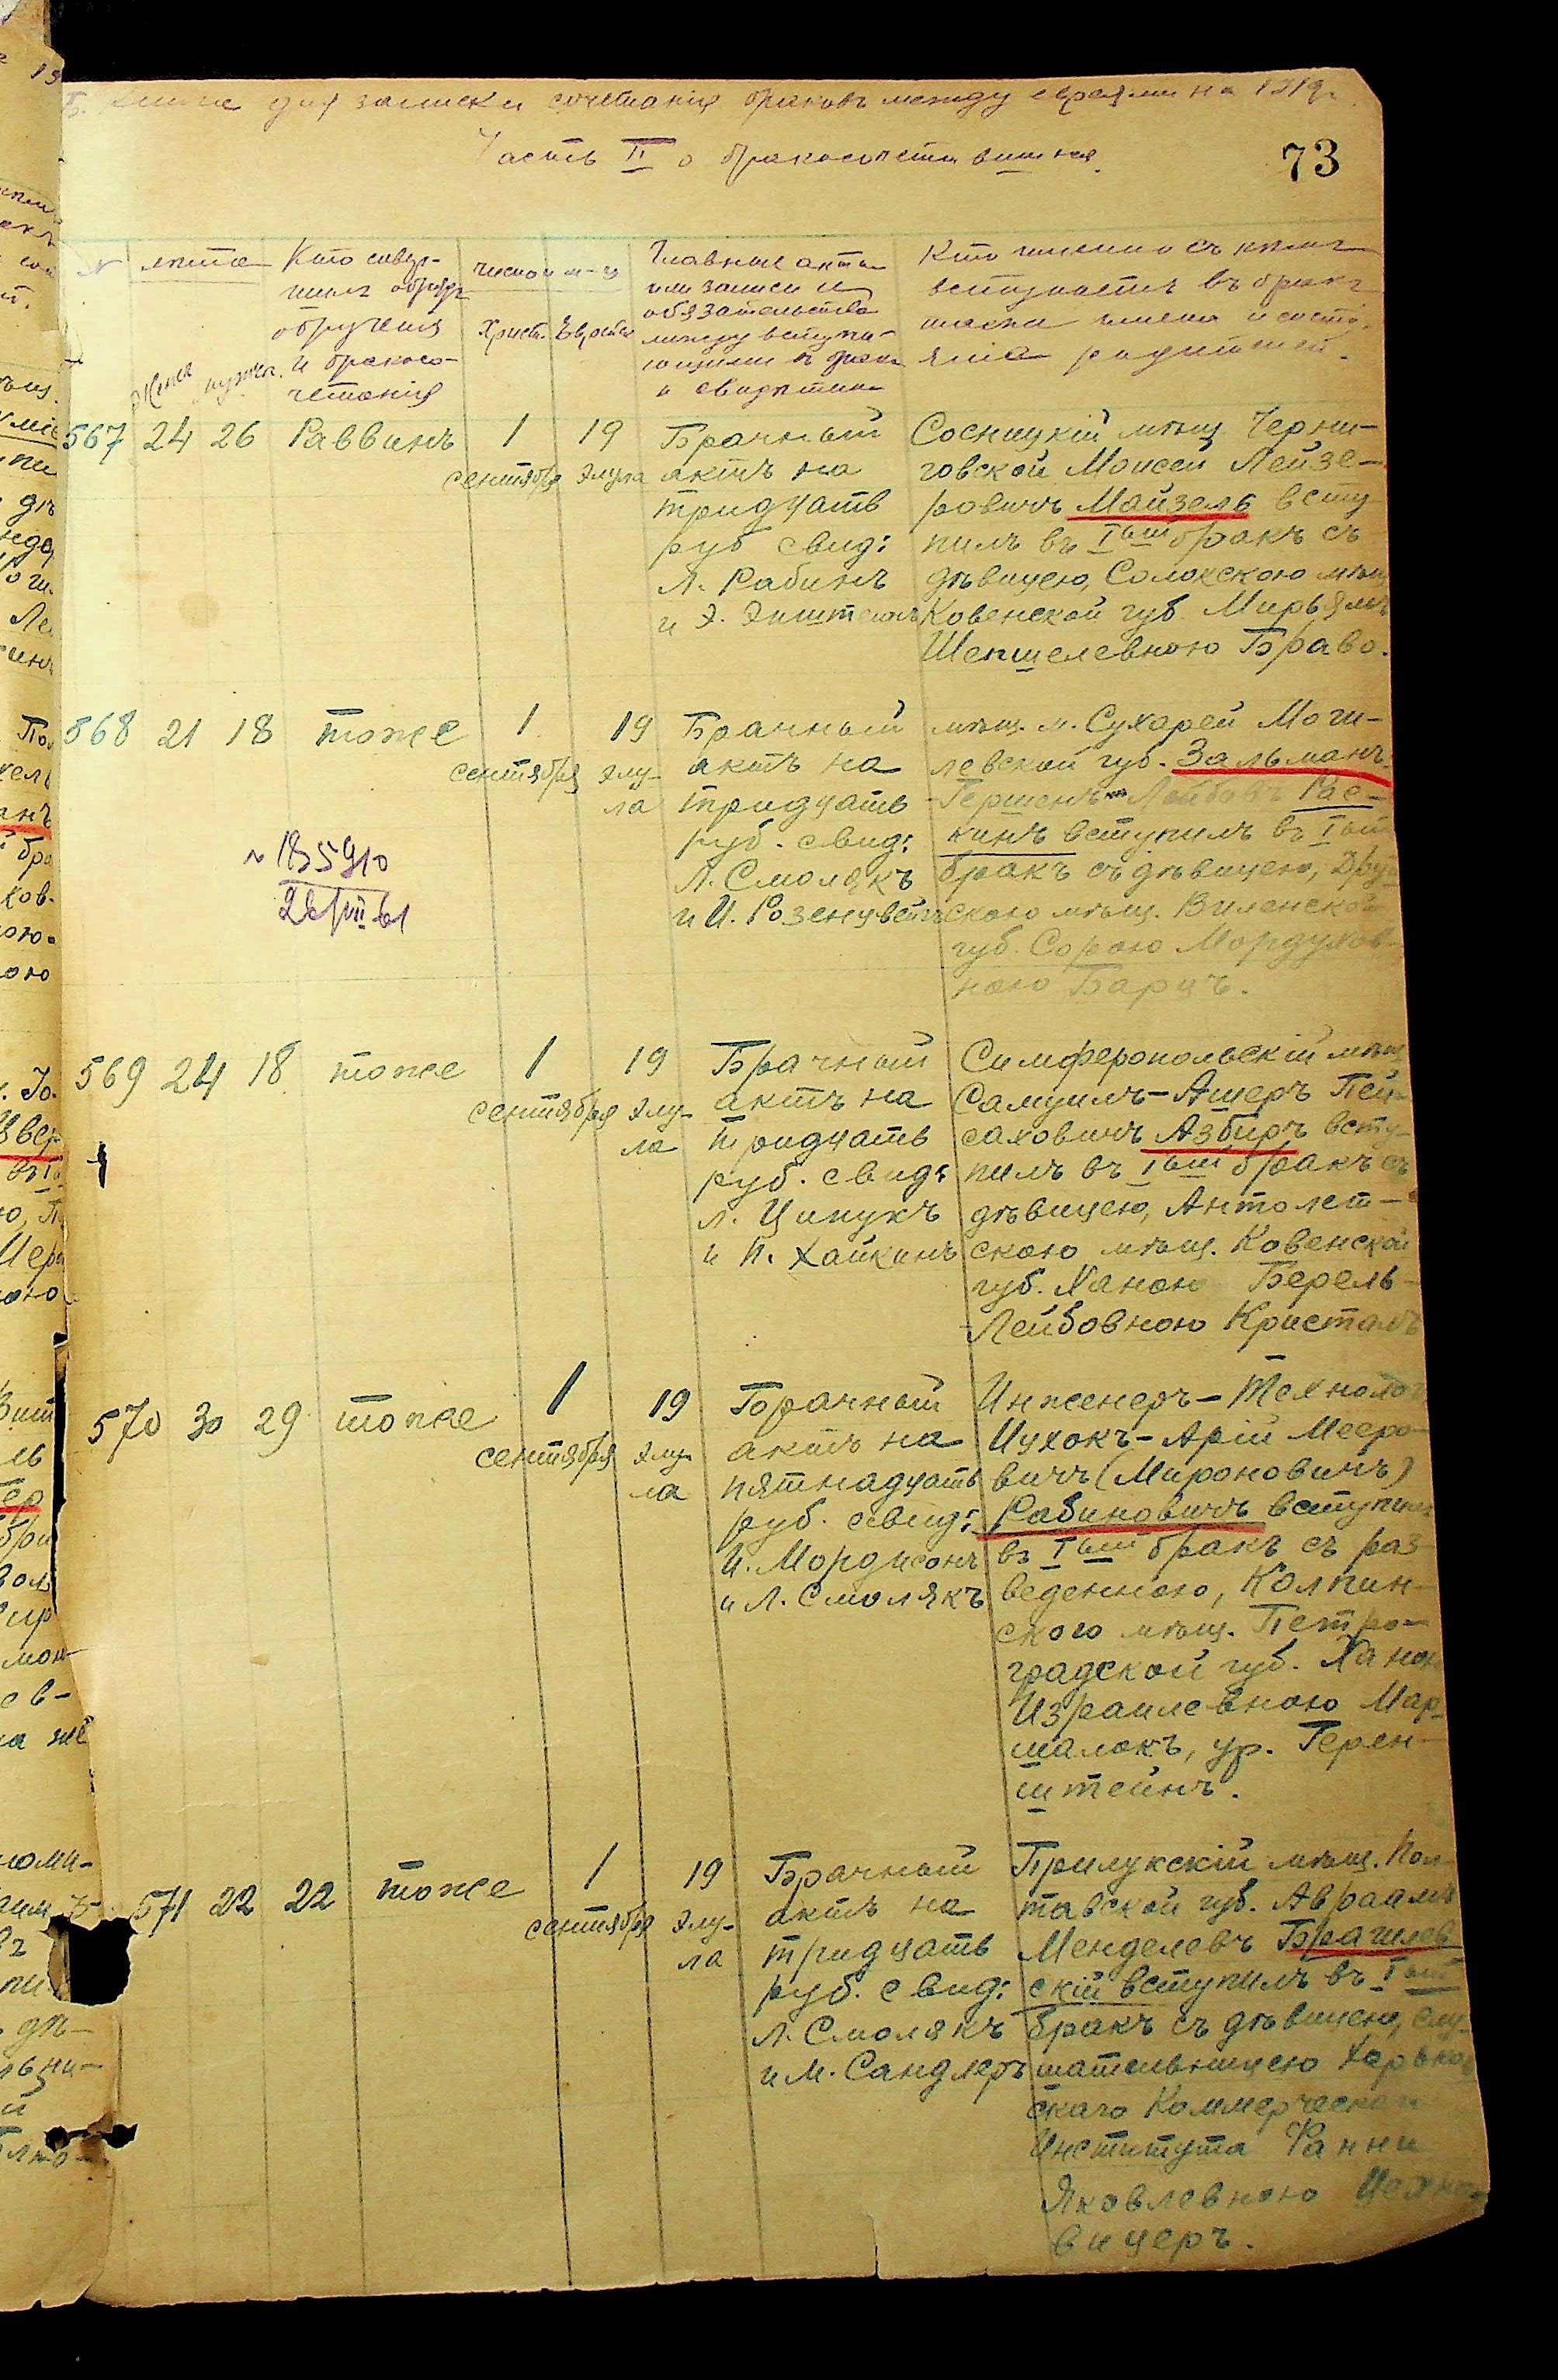 для записки сочетанія браковъ между евреями на 1919г.
Часть II о бракосочетавшихся.
73
№
лѣта
жена
мужск.
Кто совер-
шилъ обрядъ
обрученія
и бракосо-
четанія
число и м-ц
Христ.
Еврейск.
Главные акты
или записи и
обязательства
между вступа-
ющими въ бракъ
и свидѣтели
Кто именно съ кѣмъ
вступаетъ въ бракъ
также имена и состо-
янія родителей.
567 24 26 Раввинъ
1
сентября
19
элула
Брачный
актъ на
тридцать
руб свид:
Л. Рабинъ
и Э. Эпштейнъ
Сосницкій мѣщ. Черни-
говской Моисей Лейзе-
ровичъ Майзель всту-
пилъ въ Iый бракъ съ
дѣвицею, Солокскою мѣщ.
Ковенской губ. Мирьямъ
Шепшелевною Браво.
568 21 18 тоже
1
сентября
19
элу-
ла
Брачный
актъ на
тридцать
руб. свид:
Л. Смолякъ
и И. Розенцвейгъ
мѣщ. м. Сухарей Моги-
левской губ. Залманъ-
Гершенъ Лейбовъ Рас-
кинъ вступилъ въ Iый
бракъ съ дѣвицею, Друй-
скою мѣщ. Виленской
губ. Сорою Мордухов-
ною Барцъ.
№ 185910
26/VII-61
569 24 18 тоже
1
сентября
19
элу-
ла
Брачный
актъ на
тридцать
руб. свид:
Л. Ципукъ
и П. Хайкинъ
Симферопольскій мѣщ.
Самуилъ-Ашеръ Пей-
саховичъ Азбиръ всту-
пилъ въ Iый бракъ съ
дѣвицею, Антолепт-
скою мѣщ. Ковенской
губ. Ханою Берель-
Лейбовною Кристалъ
570 30 29 тоже
1
сентября
19
элу-
ла
Брачный
актъ на
пятнадцать
руб. свид:
И. Мордисонъ
и Л. Смолякъ
Инженеръ-Технологъ
Ицхокъ-Арій Мееро-
вичъ (Мироновичъ)
Рабиновичъ вступилъ
въ Iый бракъ съ раз-
веденною, Колпин-
скою мѣщ. Петро-
градской губ. Ханою
Израилевною Мар-
шалокъ, ур. Герен-
штейнъ.
571 22 22 тоже
1
сентября
19
элу-
ла
Брачный
актъ на
тридцать
руб. свид:
Л. Смолякъ
и М. Сандлеръ
Прилукскій мѣщ. Пол-
тавской губ. Авраамъ
Менделевъ Брагилев-
скій вступилъ въ Iый
бракъ съ дѣвицею, слу-
шательницею Харьков-
скаго Коммерческаго
Института Фанни
Яковлевною Цехно-
вицеръ.